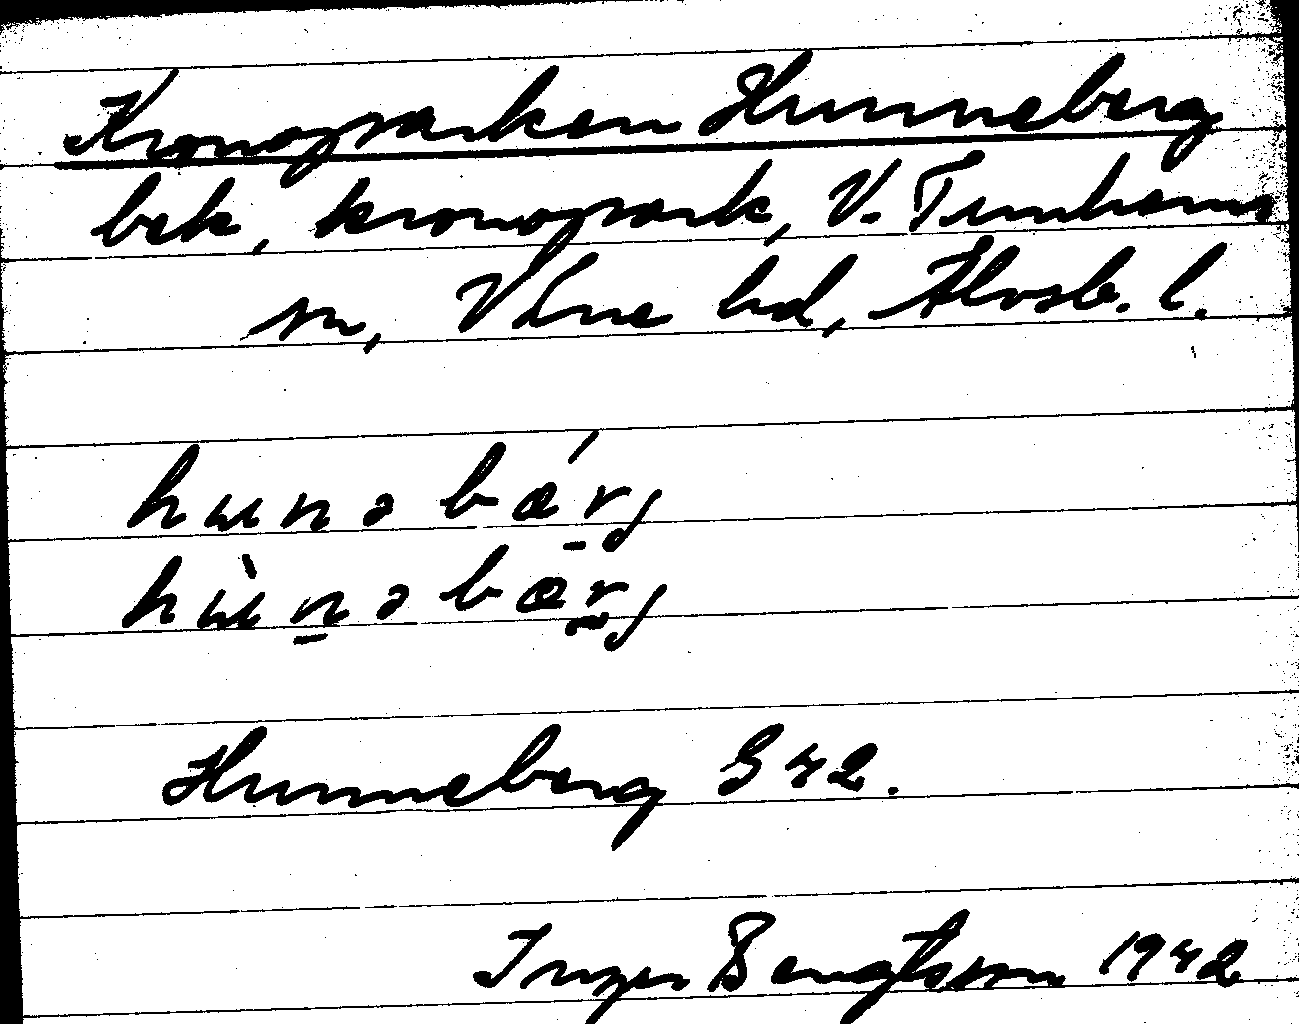 Kronoparken Hunneberg
bek, kronopark, V. Tunhems
sn, Väne hd, Älvsb. l.
hunəbǽrj
hùnəbærj
Hunneberg G 42.
Inger Bengtsson 1942